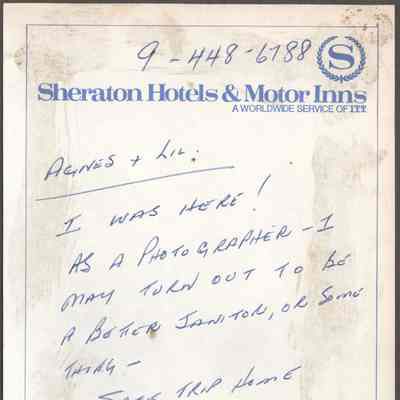 9-448-6788
S
Sheraton Hotels & Motor Inns
A WORLDWIDE SERVICE OF ITT
AGNES + LIL:
I WAS HERE!
AS A PHOTOGRAPHER - I
MAY TURN OUT TO BE
A BETER JANITOR, OR SOME
THING -
SAFE TRIP HOME